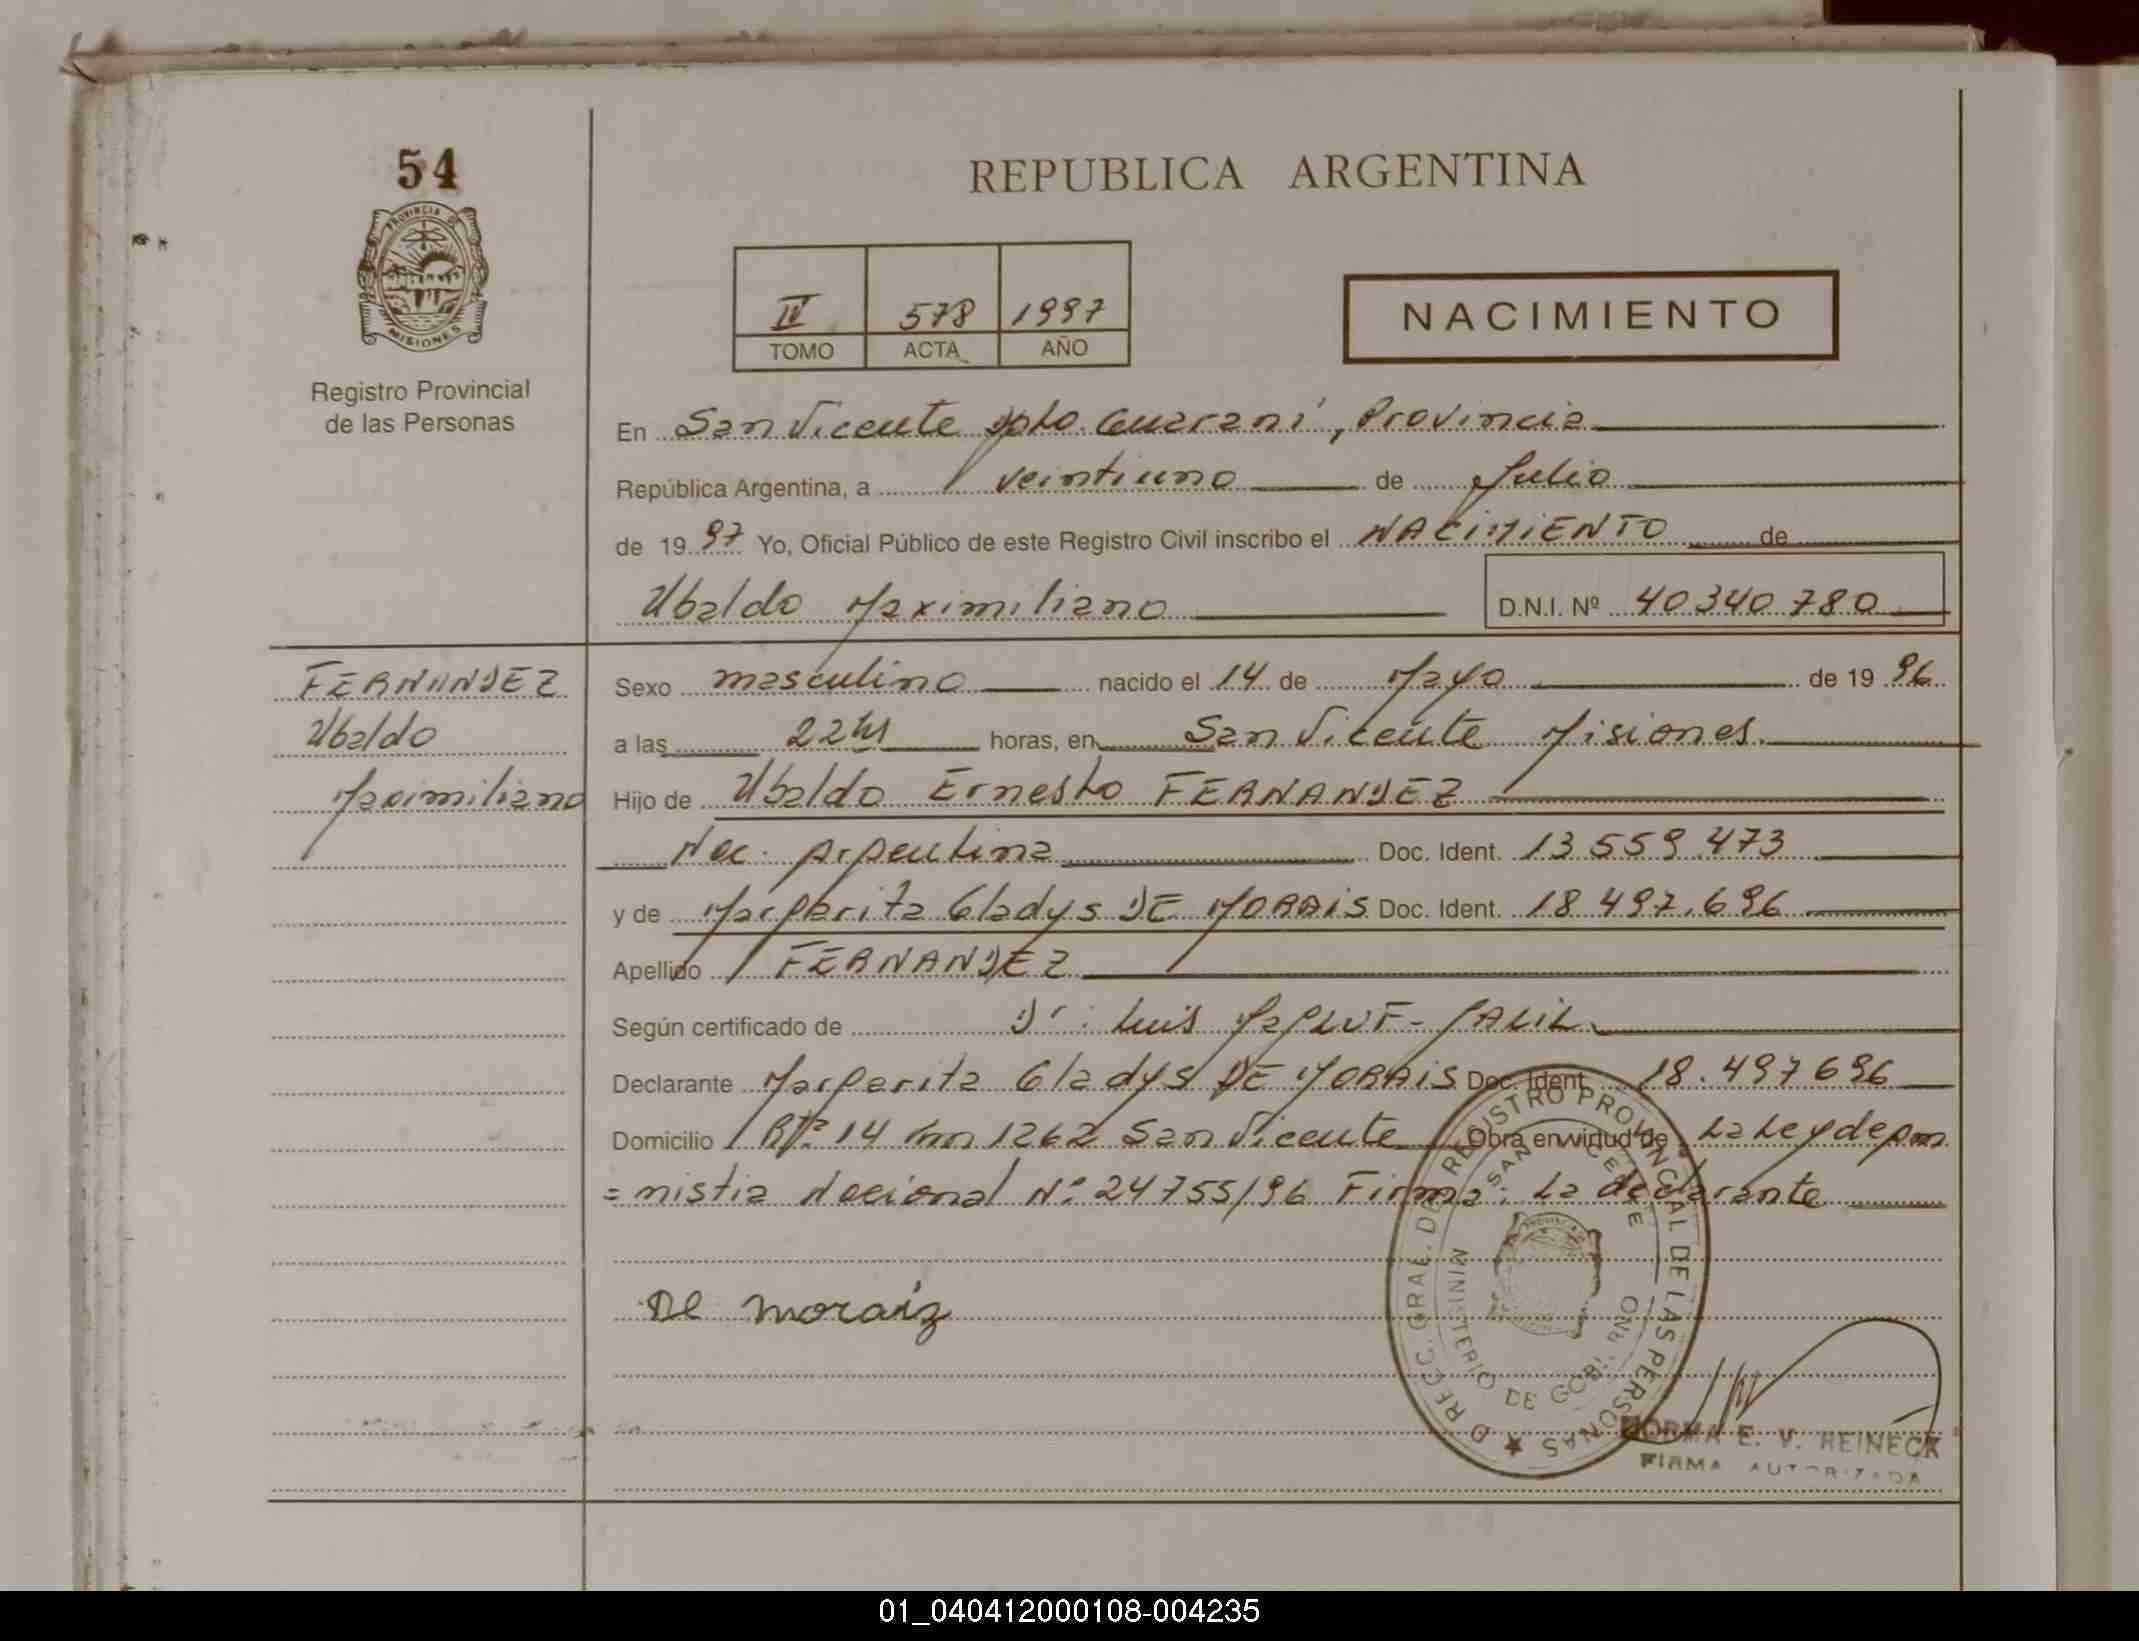 54
PROVINCIA DE
MISIONES
Registro Provincial
de las Personas
REPUBLICA ARGENTINA
IV 578 1997
TOMO ACTA AÑO
NACIMIENTO
En San Vicente Dpto. Guarani, Provincia
República Argentina, a veintiuno de Julio
de 1997 Yo, Oficial Público de este Registro Civil inscribo el NACIMIENTO de
Ubaldo Maximiliano D.N.I. Nº 40340780
FERNANDEZ
Ubaldo
Maximiliano
Sexo masculino nacido el 14 de Mayo de 1996
a las 22hs horas, en San Vicente Misiones.
Hijo de Ubaldo Ernesto FERNANDEZ
Nac. Argentina Doc. Ident. 13.559.473
y de Margarita Gladys DE MORAIS Doc. Ident. 18.497.696
Apellido FERNANDEZ
Según certificado de Dr: Luis
Declarante Margarita Gladys DE MORAIS Doc. Ident. 18.497696
Domicilio Rta 14 km 1262 San Vicente Obra en virtud de La Ley de Am
=nistia Nacional Nº 24755/96 Firma: La declarante
De moraiz
REGISTRO PROVINCIAL DE LAS PERSONAS
SAN VICENTE
MINISTERIO DE GOBIERNO
NORMA E. V. REINECK
FIRMA AUTORIZADA
01_040412000108-004235